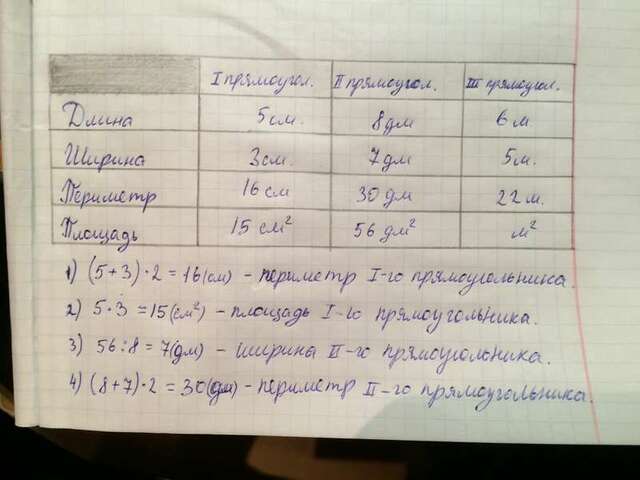 I прямоугол. II прямоугол. III прямоугол.
Длина 5см. 8дм 6м
Ширина 3см. 7дм 5м.
Периметр 16см 30дм 22м.
Площадь 15см² 56дм² м²
1) (5+3)·2=16(см) - периметр I-го прямоугольника.
2) 5·3=15(см²) - площадь I-го прямоугольника.
3) 56:8=7(дм) - ширина II-го прямоуголоника.
4) (8+7)·2=30(дм) - периметр II-го прямоугольника.